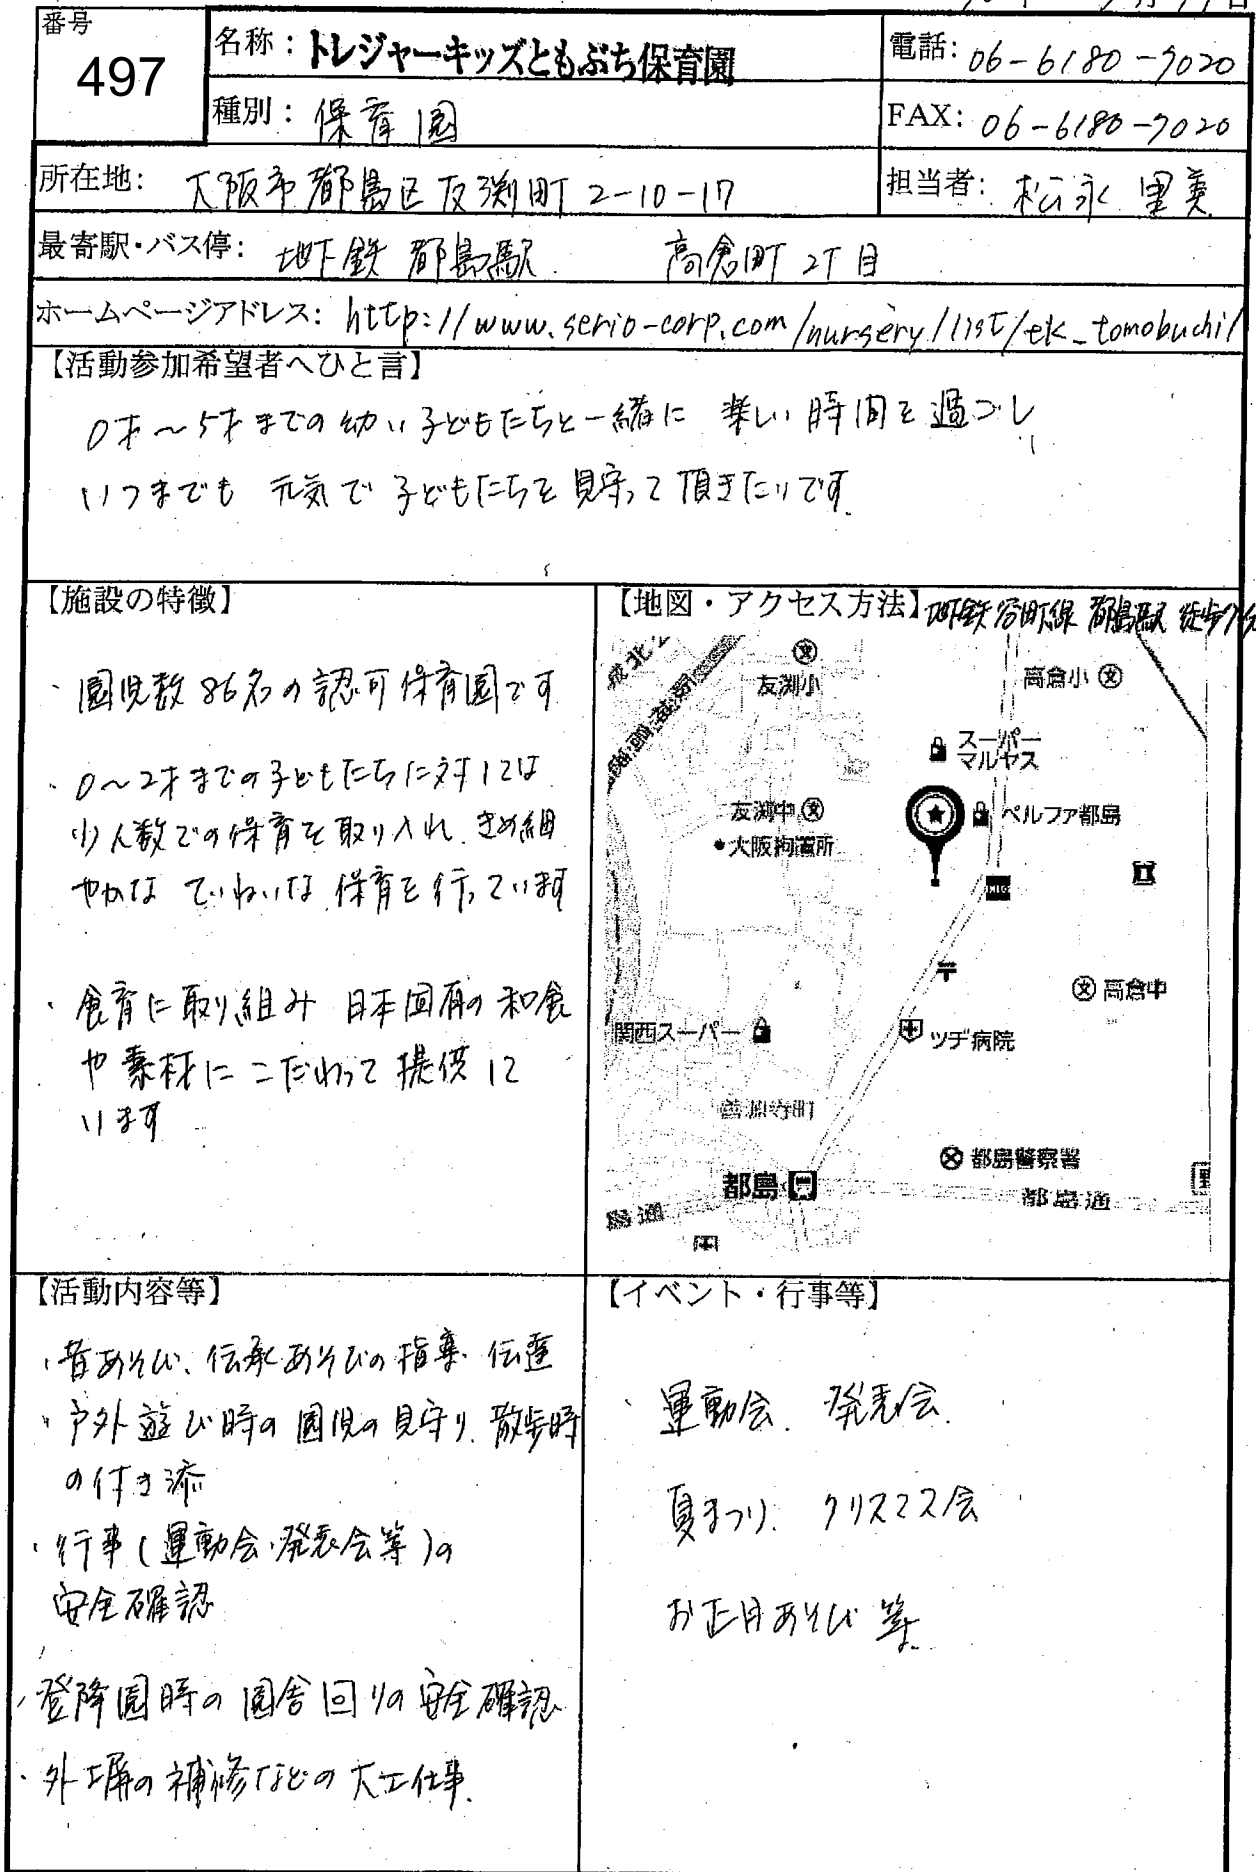 番号
497
名称：トレジャーキッズともぶち保育園
電話：06-6180-7020
種別：保育園
FAX：06-6180-7020
所在地：大阪市都島区友渕町2-10-17
担当者：松永 里美
最寄駅・バス停：地下鉄 都島駅 高倉町2丁目
ホームページアドレス：http://www.serio-corp.com/nursery/list/tk_tomobuchi/
【活動参加希望者へひと言】
0才～5才までの幼い子どもたちと一緒に 楽しい時間を過ごし
いつまでも 元気で子どもたちを見守って頂きたいです.
【施設の特徴】
・園児数86名の認可保育園です
・0～2才までの子どもたちに対しては
少人数での保育を取り入れ、きめ細
やかな ていねいな 保育を行っています
・食育に取り組み 日本固有の和食
や素材に こだわって提供して
います
【地図・アクセス方法】地下鉄谷町線 都島駅 徒歩7分
城北
友渕小
高倉小
スーパー
マルヤス
友渕中
ベルファ都島
大阪拘置所
高倉中
関西スーパー
ツヂ病院
善源寺町
都島警察署
都島
都島通
島通
【活動内容等】
・昔あそび、伝承あそびの指導・伝達
・戸外遊び時の園児の見守り、散歩時
の付き添
・行事(運動会・発表会等)の
安全確認
・登降園時の園舎回りの安全確認
・外塀の補修などの大工仕事.
【イベント・行事等】
・運動会、発表会、
夏まつり、クリスマス会
お正月あそび 等